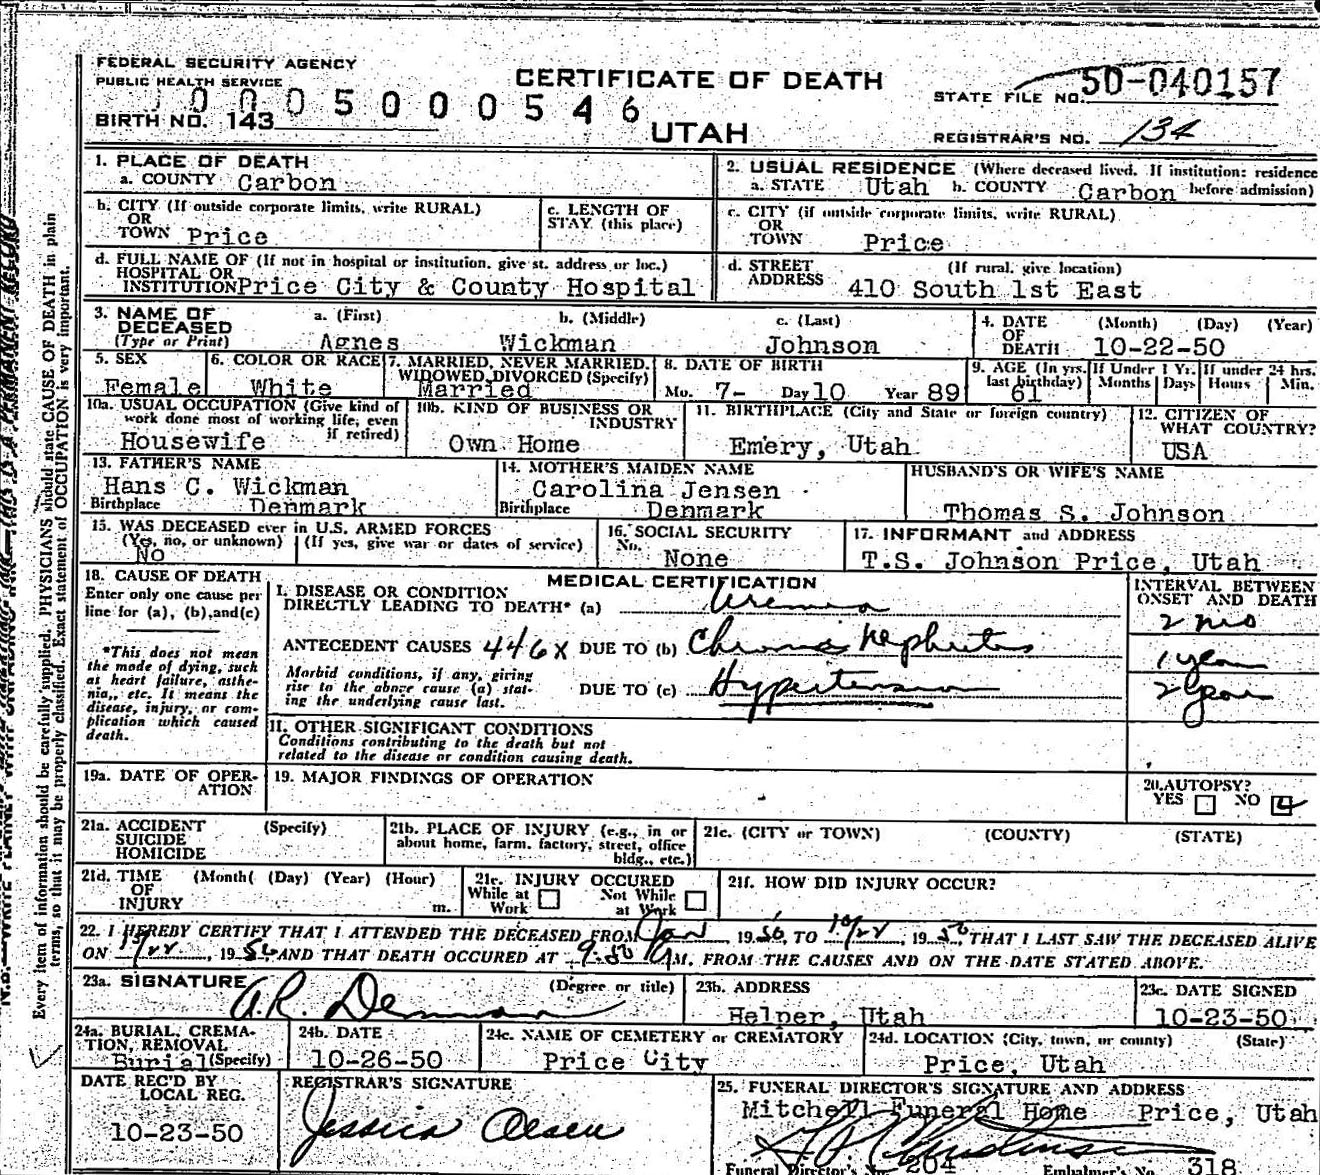 FEDERAL SECURITY AGENCY
PUBLIC HEALTH SERVICE
0005000546
BIRTH NO. 143
CERTIFICATE OF DEATH
UTAH
STATE FILE NO. 50-040157
REGISTRAR'S NO. 134
1. PLACE OF DEATH
a. COUNTY Carbon
2. USUAL RESIDENCE (Where deceased lived. If institution: residence
a. STATE Utah b. COUNTY Carbon before admission)
b. CITY (If outside corporate limits, write RURAL)
OR
TOWN Price
c. LENGTH OF
STAY (this place)
c. CITY (if outside corporate limits, write RURAL)
OR
TOWN Price
d. FULL NAME OF (If not in hospital or institution, give st. address or loc.)
HOSPITAL OR
INSTITUTION Price City & County Hospital
d. STREET (If rural, give location)
ADDRESS 410 South 1st East
3. NAME OF DECEASED (Type or Print)
a. (First) b. (Middle) c. (Last)
Agnes Wickman Johnson
4. DATE OF DEATH (Month) (Day) (Year)
10-22-50
5. SEX
Female
6. COLOR OR RACE
White
7. MARRIED, NEVER MARRIED,
WIDOWED, DIVORCED (Specify)
Married
8. DATE OF BIRTH
Mo. 7- Day 10 Year 89
9. AGE (In yrs. last birthday) 61
If Under 1 Yr. Months Days
If under 24 hrs. Hours Min.
10a. USUAL OCCUPATION (Give kind of
work done most of working life, even
if retired)
Housewife
10b. KIND OF BUSINESS OR
INDUSTRY
Own Home
11. BIRTHPLACE (City and State or foreign country)
Emery, Utah
12. CITIZEN OF
WHAT COUNTRY?
USA
13. FATHER'S NAME
Hans C. Wickman
Birthplace Denmark
14. MOTHER'S MAIDEN NAME
Carolina Jensen
Birthplace Denmark
HUSBAND'S OR WIFE'S NAME
Thomas S. Johnson
15. WAS DECEASED ever in U.S. ARMED FORCES
(Yes, no, or unknown) (If yes, give war or dates of service)
No
16. SOCIAL SECURITY
No. None
17. INFORMANT and ADDRESS
T.S. Johnson Price, Utah
18. CAUSE OF DEATH
Enter only one cause per
line for (a), (b), and (c)
*This does not mean
the mode of dying, such
at heart failure, asthe-
nia, etc. It means the
disease, injury, or com-
plication which caused
death.
MEDICAL CERTIFICATION
I. DISEASE OR CONDITION
DIRECTLY LEADING TO DEATH* (a) Uremia
ANTECEDENT CAUSES 446X DUE TO (b) Chronic Nephritis
Morbid conditions, if any, giving
rise to the above cause (a) stat-
ing the underlying cause last.
DUE TO (c) Hypertension
INTERVAL BETWEEN
ONSET AND DEATH
2 mo
1 year
2 year
II. OTHER SIGNIFICANT CONDITIONS
Conditions contributing to the death but not
related to the disease or condition causing death.
19a. DATE OF OPER-
ATION
19. MAJOR FINDINGS OF OPERATION
20. AUTOPSY?
YES NO
21a. ACCIDENT (Specify)
SUICIDE
HOMICIDE
21b. PLACE OF INJURY (e.g., in or
about home, farm, factory, street, office
bldg., etc.)
21c. (CITY or TOWN) (COUNTY) (STATE)
21d. TIME (Month( (Day) (Year) (Hour)
OF
INJURY m.
21e. INJURY OCCURED
While at Work Not While at Work
21f. HOW DID INJURY OCCUR?
22. I HEREBY CERTIFY THAT I ATTENDED THE DECEASED FROM Jan, 1950, TO 10/22, 1950, THAT I LAST SAW THE DECEASED ALIVE
ON 10/22, 1950 AND THAT DEATH OCCURED AT 9:50 M, FROM THE CAUSES AND ON THE DATE STATED ABOVE.
23a. SIGNATURE (Degree or title)
A.R. Demman
23b. ADDRESS
Helper, Utah
23c. DATE SIGNED
10-23-50
24a. BURIAL, CREMA-
TION, REMOVAL
Burial (Specify)
24b. DATE
10-26-50
24c. NAME OF CEMETERY or CREMATORY
Price City
24d. LOCATION (City, town, or county) (State)
Price, Utah
DATE REC'D BY
LOCAL REG.
10-23-50
REGISTRAR'S SIGNATURE
Jessica Olsen
25. FUNERAL DIRECTOR'S SIGNATURE AND ADDRESS
Mitchell Funeral Home Price, Utah
Funeral Director's No. 204 Embalmer's No. 318
Every item of information should be carefully supplied. PHYSICIANS should state CAUSE OF DEATH in plain
terms, so that it may be properly classified. Exact statement of OCCUPATION is very important.